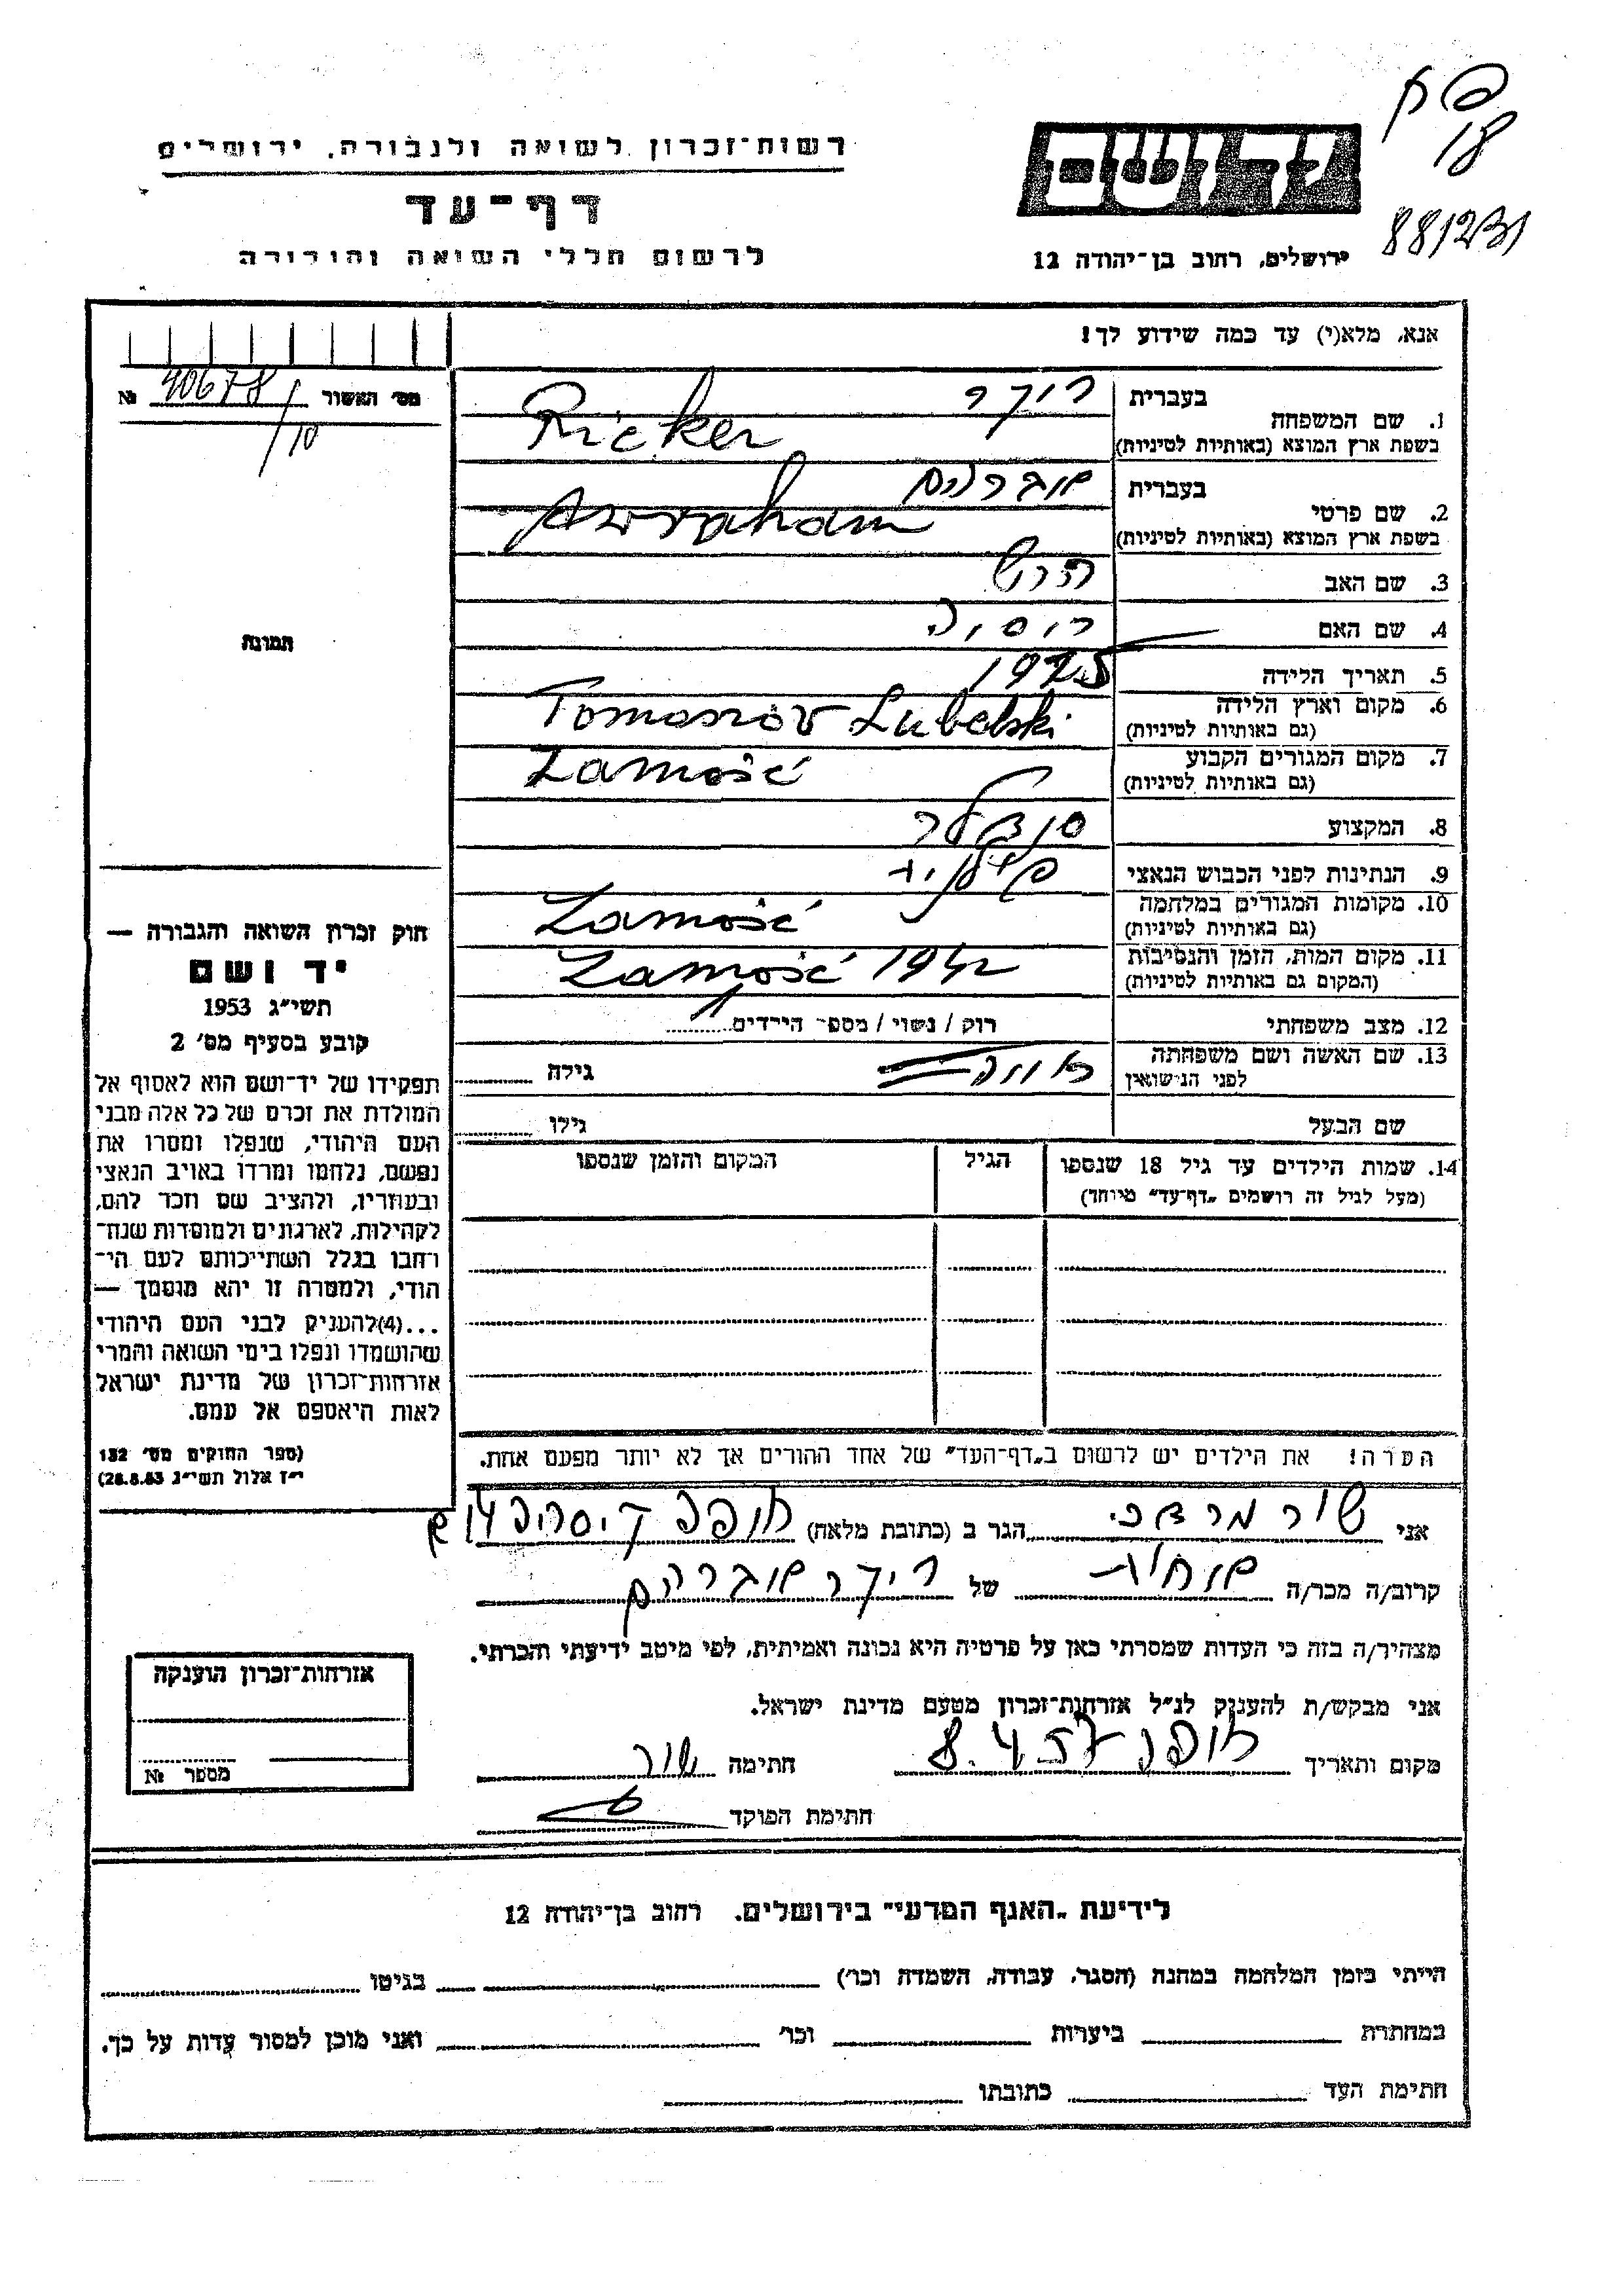 רשות-זכרון לשואה ולגבורה, ירושלים
דף-עד
לרשום חללי השואה והגבורה
יד ושם
ירושלים, רחוב בן-יהודה 12
18
881231
אנא, מלא(י) עד כמה שידוע לך!
מס' האשור № 40678
10
1. שם המשפחה
בעברית ריקר
בשפת ארץ המוצא (באותיות לטיניות) Ricker
2. שם פרטי
בעברית אברהם
בשפת ארץ המוצא (באותיות לטיניות) Awraham
3. שם האב הרש
4. שם האם
5. תאריך הלידה
6. מקום וארץ הלידה
(גם באותיות לטיניות) Tomaszów Lubelski
7. מקום המגורים הקבוע
(גם באותיות לטיניות) Zamość
8. המקצוע סנדלר
9. הנתינות לפני הכבוש הנאצי
10. מקומות המגורים במלחמה
(גם באותיות לטיניות) Zamość
11. מקום המות, הזמן והנסיבות
(המקום גם באותיות לטיניות) Zamość 1942
12. מצב משפחתי רוק / נשוי / מספ' הילדים
13. שם האשה ושם משפחתה
לפני הנישואין גילה
שם הבעל גילו
14. שמות הילדים עד גיל 18 שנספו
(מעל לגיל זה רושמים „דף-עד" מיוחד)
הגיל
המקום והזמן שנספו
תמונה
חוק זכרון השואה והגבורה —
יד ושם
תשי"ג 1953
קובע בסעיף מס' 2
תפקידו של יד-ושם הוא לאסוף אל
המולדת את זכרם של כל אלה מבני
העם היהודי, שנפלו ומסרו את
נפשם, נלחמו ומרדו באויב הנאצי
ובעוזריו, ולהציב שם וזכר להם,
לקהילות, לארגונים ולמוסדות שנח-
רחבו בגלל השתייכותם לעם הי-
הודי, ולמטרה זו יהא מוסמך —
...(4)להעניק לבני העם היהודי
שהושמדו ונפלו בימי השואה והמרי
אזרחות-זכרון של מדינת ישראל
לאות היאספם אל עמם.
(ספר החוקים מס' 132
י"ז אלול תשי"ג 28.8.53)
הערה! את הילדים יש לרשום ב„דף-העד" של אחד ההורים אך לא יותר מפעם אחת.
אני שור מרדכי הגר ב (כתובת מלאה)
קרוב/ה מכר/ה של ריקר אברהם
מצהיר/ה בזה כי העדות שמסרתי כאן על פרטיה היא נכונה ואמיתית, לפי מיטב ידיעתי והכרתי.
אני מבקש/ת להעניק לנ"ל אזרחות-זכרון מטעם מדינת ישראל.
מקום ותאריך 8.4.57 חתימה שור
חתימת הפוקד
אזרחות-זכרון הוענקה
מספר №
לידיעת „האגף המדעי" בירושלים. רחוב בן-יהודה 12
הייתי בזמן המלחמה במחנה (הסגר, עבודה, השמדה וכו') בגיטו
במחתרת ביערות וכו' ואני מוכן למסור עדות על כך.
חתימת העד כתובתו